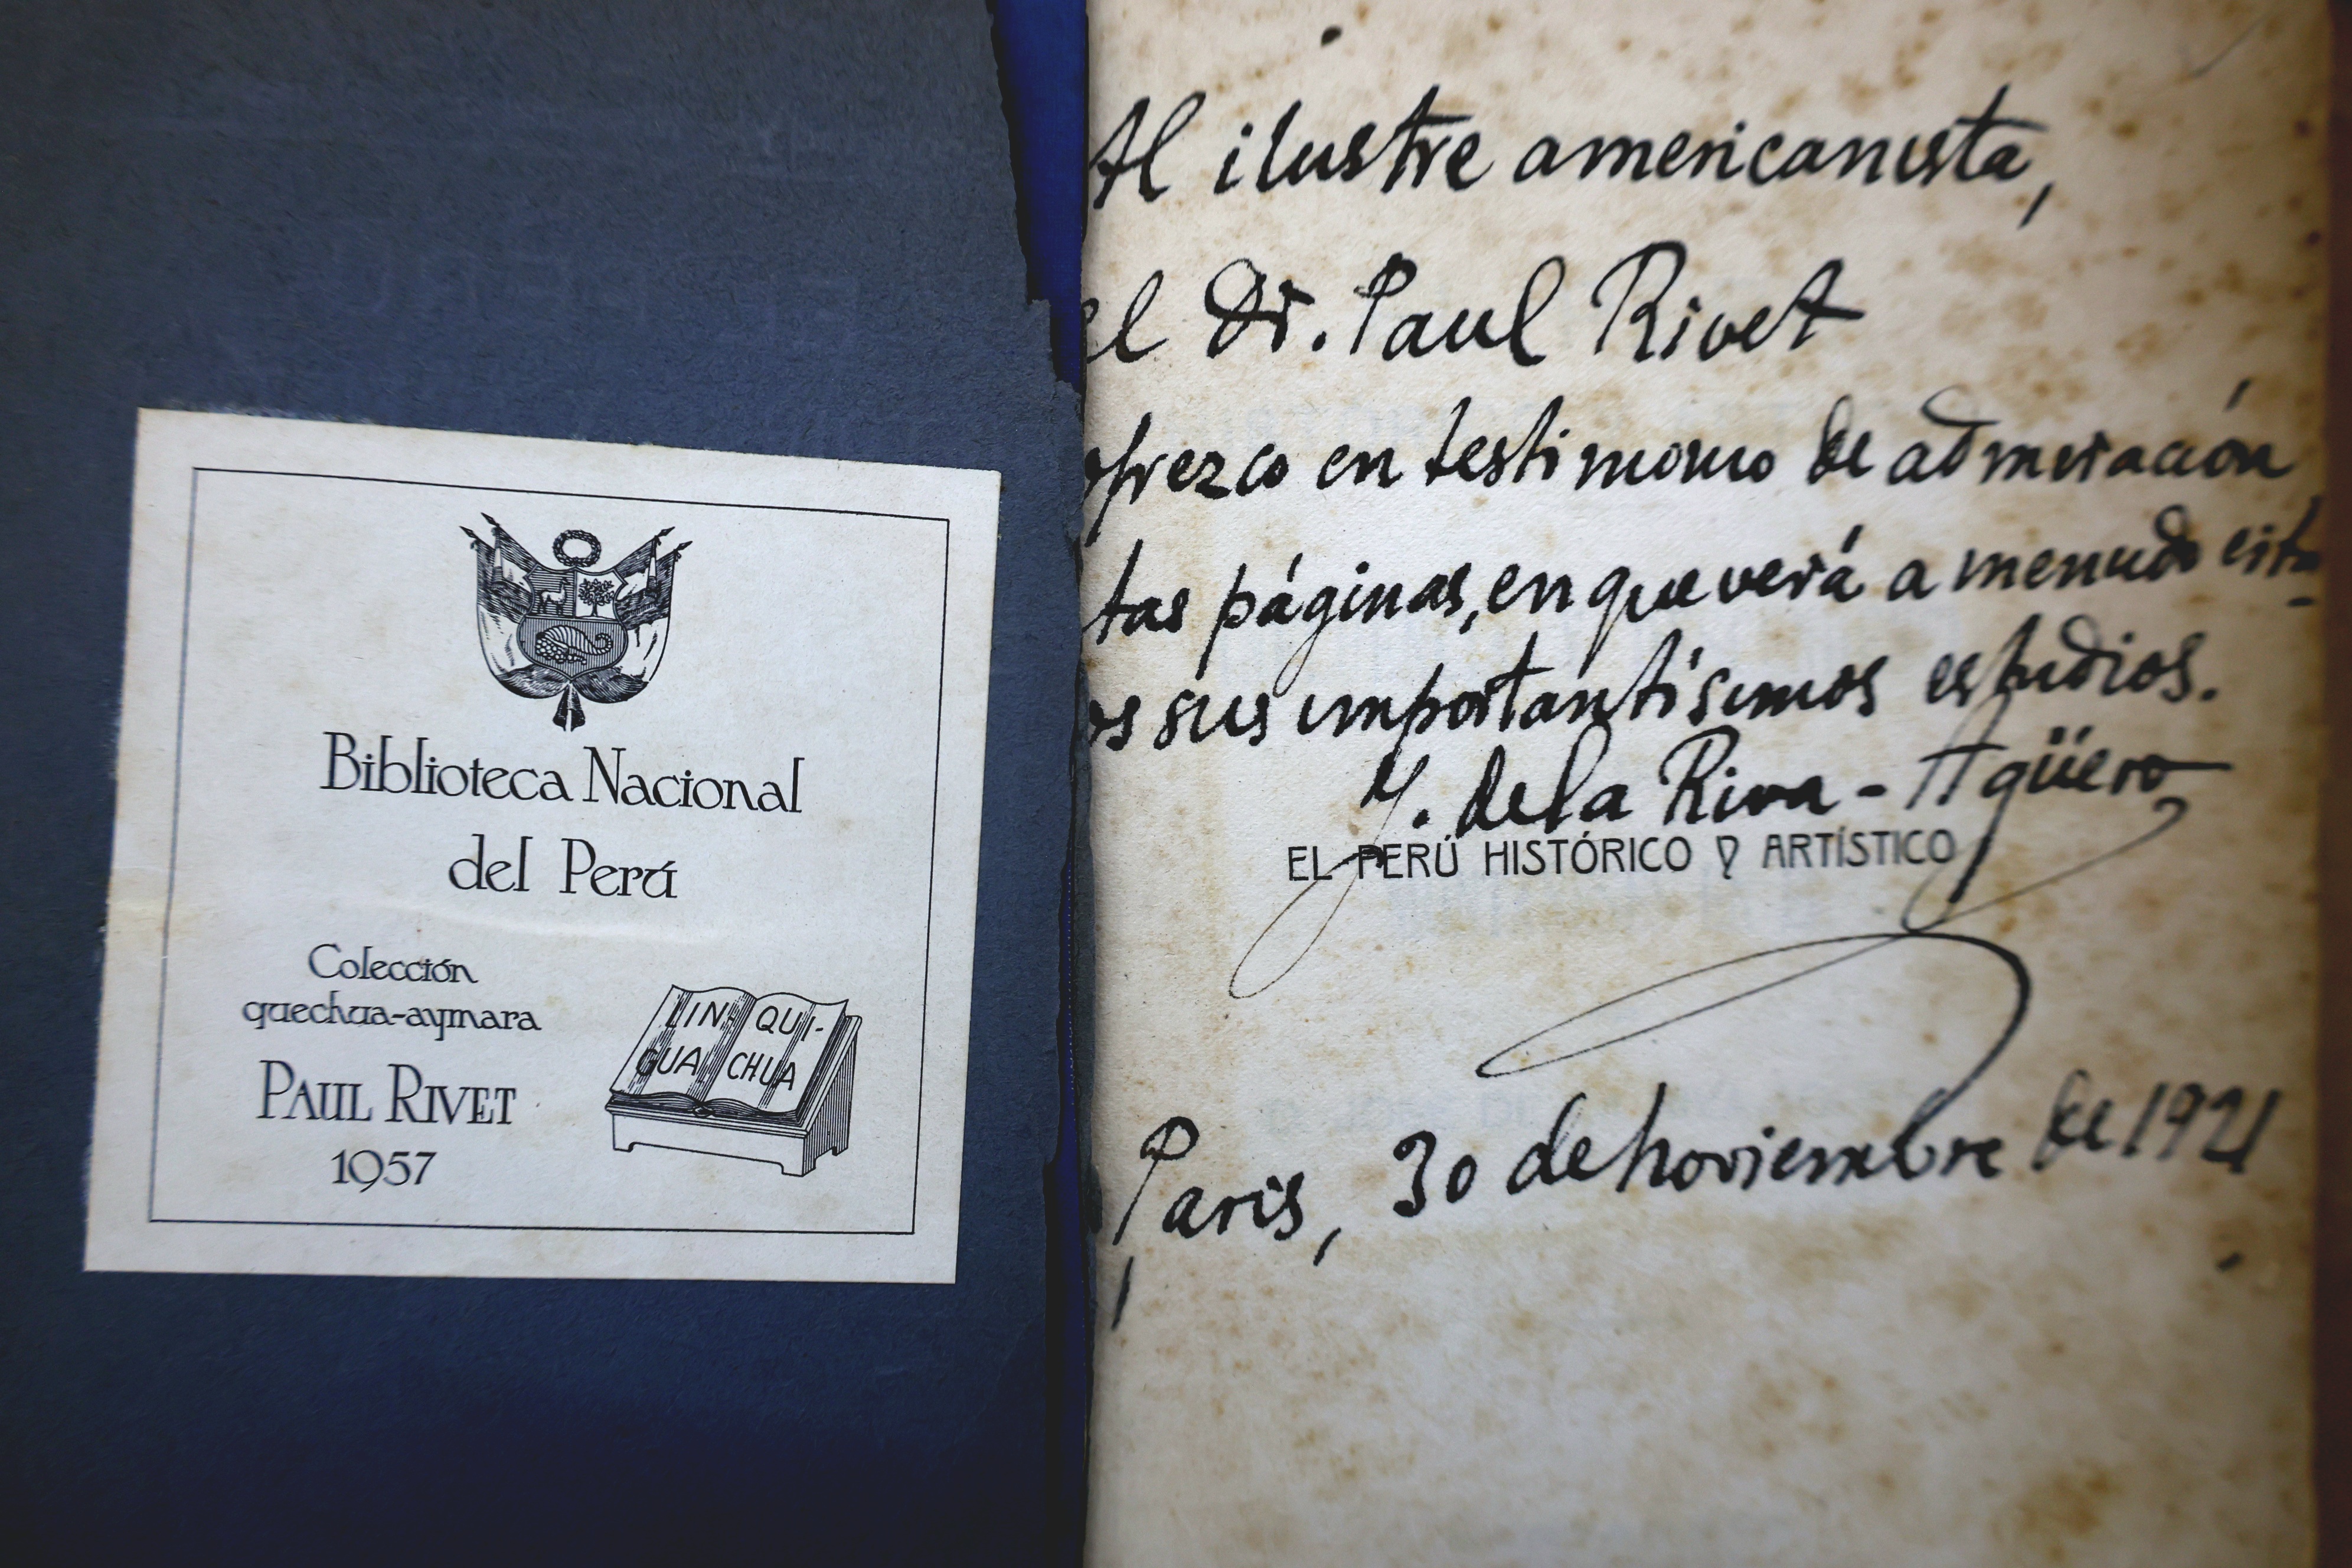 Biblioteca Nacional
del Perú
Colección
quechua-aymara
PAUL RIVET
1957
LIN- QUI-
GUA CHUA
Al ilustre americanista,
el Dr. Paul Rivet
ofrezco en testimonio de admiración
tas páginas, en que verá a menudo cita-
os sus importantísimos estudios.
J. de la Riva-Agüero
EL PERÚ HISTÓRICO Y ARTÍSTICO
Paris, 30 de noviembre de 1921